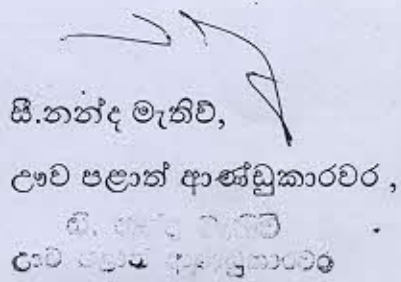 සී.නන්ද මැතිව්,
ඌව පළාත් ආණ්ඩුකාරවර ,
සී. නන්ද මැතිව්
ඌව පළාත් ආණ්ඩුකාරවර